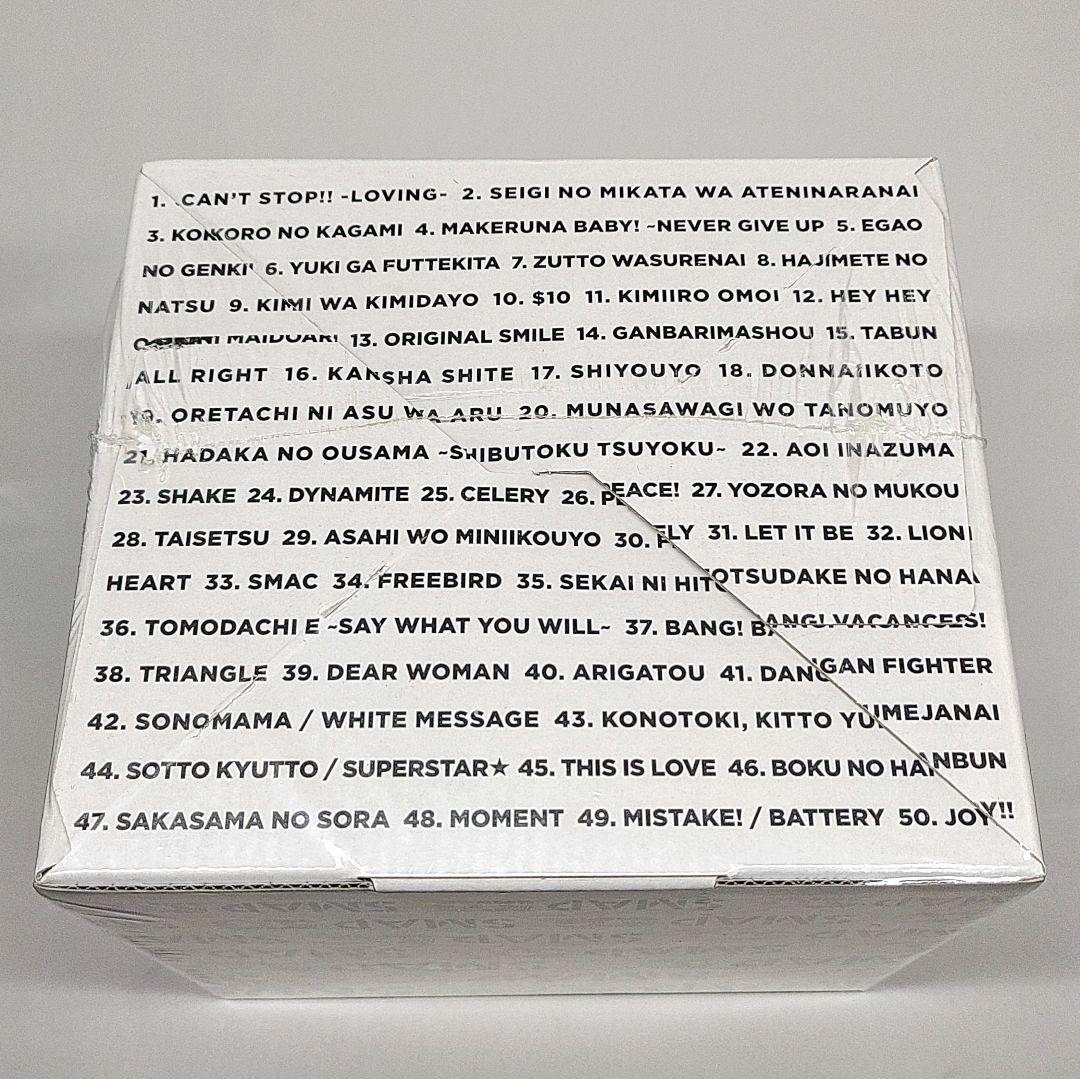 1. CAN'T STOP!! -LOVING- 2. SEIGI NO MIKATA WA ATENINARANAI
3. KOKORO NO KAGAMI 4. MAKERUNA BABY! ~NEVER GIVE UP 5. EGAO
NO GENKI 6. YUKI GA FUTTEKITA 7. ZUTTO WASURENAI 8. HAJIMETE NO
NATSU 9. KIMI WA KIMIDAYO 10. $10 11. KIMIIRO OMOI 12. HEY HEY
13. ORIGINAL SMILE 14. GANBARIMASHOU 15. TABUN
ALL RIGHT 16. KANSHA SHITE 17. SHIYOUYO 18. DONNAIIKOTO
19. ORETACHI NI ASU WA ARU 20. MUNASAWAGI WO TANOMUYO
21. HADAKA NO OUSAMA ~SHIBUTOKU TSUYOKU~ 22. AOI INAZUMA
23. SHAKE 24. DYNAMITE 25. CELERY 26. PEACE! 27. YOZORA NO MUKOU
28. TAISETSU 29. ASAHI WO MINIIKOUYO 30. FLY 31. LET IT BE 32. LION
HEART 33. SMAC 34. FREEBIRD 35. SEKAI NI HITOTSUDAKE NO HANA
36. TOMODACHI E ~SAY WHAT YOU WILL~ 37. BANG! BANG! VACANCES!
38. TRIANGLE 39. DEAR WOMAN 40. ARIGATOU 41. DANGAN FIGHTER
42. SONOMAMA / WHITE MESSAGE 43. KONOTOKI, KITTO YUMEJANAI
44. SOTTO KYUTTO / SUPERSTAR★ 45. THIS IS LOVE 46. BOKU NO HANBUN
47. SAKASAMA NO SORA 48. MOMENT 49. MISTAKE! / BATTERY 50. JOY!!